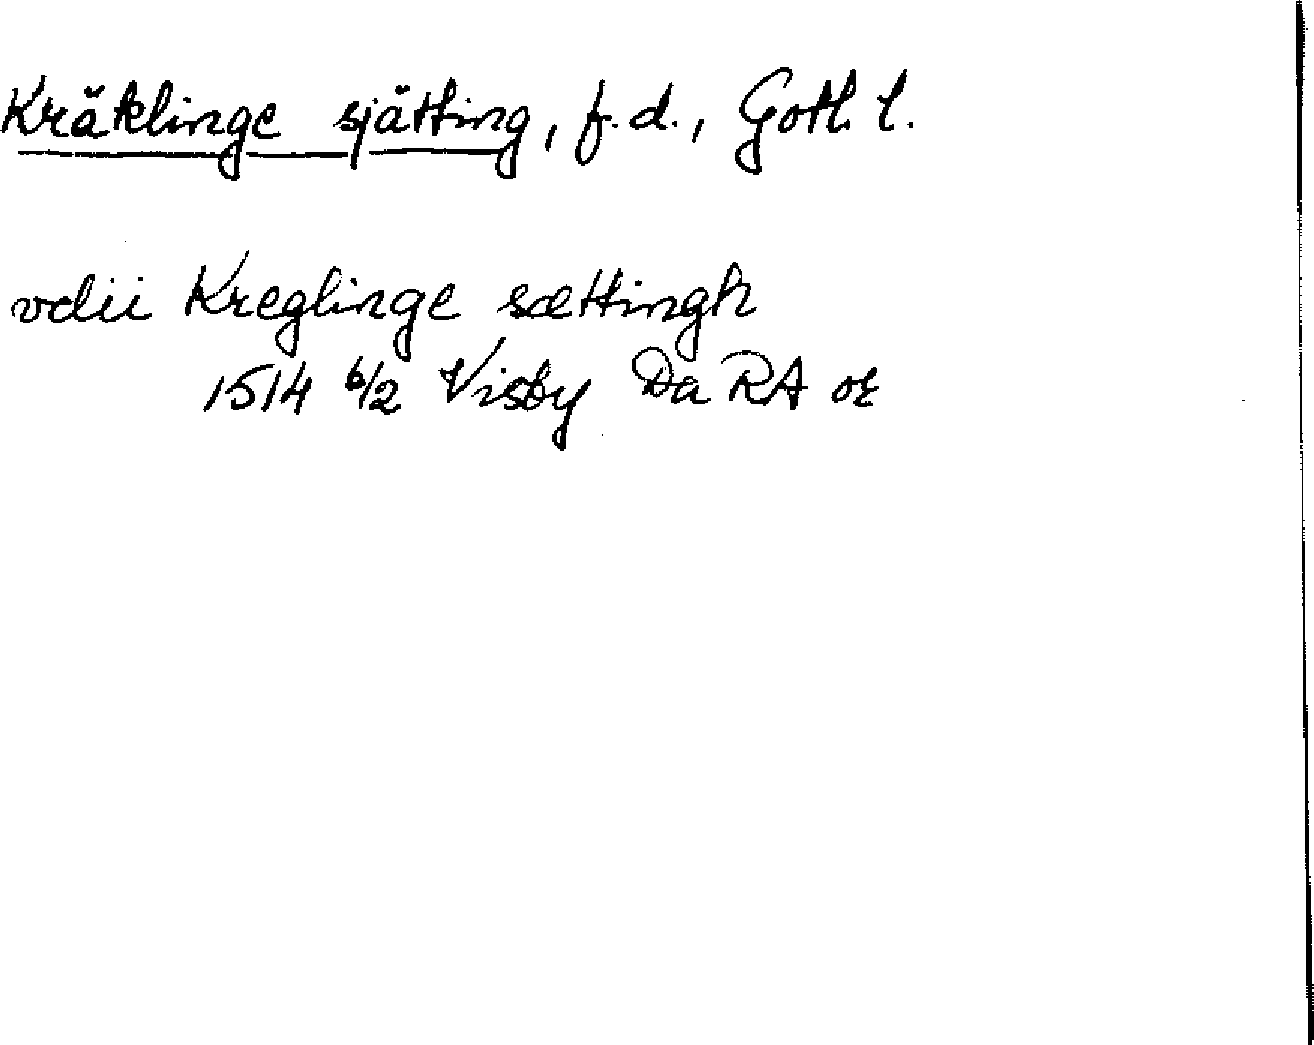 Kräklinge sjätting, f.d., Gotl. l.
vdii Kreglinge sættingh
1514 6/2 Visby Da RA or